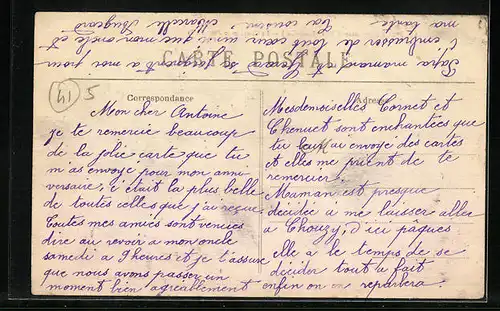 CARTE POSTALE
Correspondance
Adresse
41
5
Mon cher Antoine
je te remercie beaucoup
de la jolie carte que tu
m as envoyé pour mon anni
versaire, c'était la plus belle
de toutes celles que j'ai reçue
Toutes mes amies sont venues
dire au revoir a mon oncle
samedi a 7 heures et je t'assure
que nous avons passer un
moment bien agréablement
Mesdemoiselles Cornet et
Chenuet sont enchantées que
tu leur ai envoyé des cartes
et elles me prient de te
remercier.
Maman est presque
décidée a me laisser aller
a Chouzy, d'ici paques
elle a le temps de se
décider tout a fait
enfin on en reparlera.
Papa maman et Gerard se joignent a moi pour
t'embrasser de tout coeur ainsi que mon oncle et
ma tante Ta cousine Marcelle